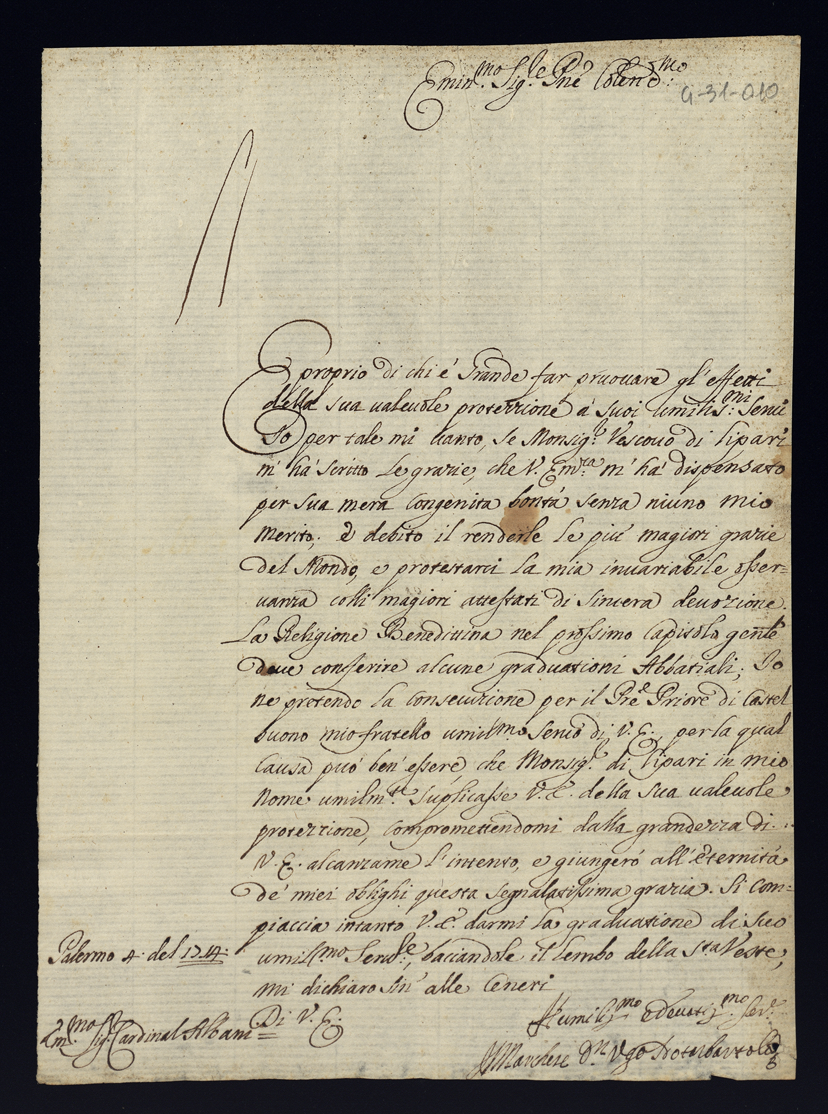 Emin.mo Sig.e Pne Colend.mo:
9-31-010
E proprio di chi é Grande far pruouare gl'effetti
della sua valeuole protezzione á suoi umilis:mi Serui
Io per tale mi uanto, se Monsig.r Vescouo di Lipari
m' há scritto le grazie, che V. Em.za m' há dispensato
per sua mera congenita bontá senza niuno mio
merito. é debito il renderle le piú magiori grazie
del Mondo, e protestarci la mia inuariabile osser=
uanza colli magiori attestati di sincera deuozione.
La Religione Benedittina nel prossimo Capitolo gen.le
deue conferire alcune graduationi Abbatiali; Io
ne pretendo la consecuzione per il Pre Priore di Castel
buono mio fratello umil.mo seruo di V. E., per la qual
causa puó ben' essere, che Monsig.r di Lipari in mio
nome umilm.te suplicasse V. E. della sua valeuole
protezzione, compromettendomi dalla grandezza di
V. E. alcanzarne l'intento, e giungeró all' Eternitá
de' miei oblighi questa segnalatissima grazia. Si com=
piaccia intanto V. E. darmi la graduatione di suo
umil.mo Seru.le, baciandole il Lembo della S.ta Veste,
mi dichiaro sin' alle Ceneri
Palermo 4. del 1714.
Di V. E.
Em.mo Sig. Cardinal Albani
Humil.mo e Deuoti.mo Ser.e
Il Marchese D.n Vgo Notarbartolo